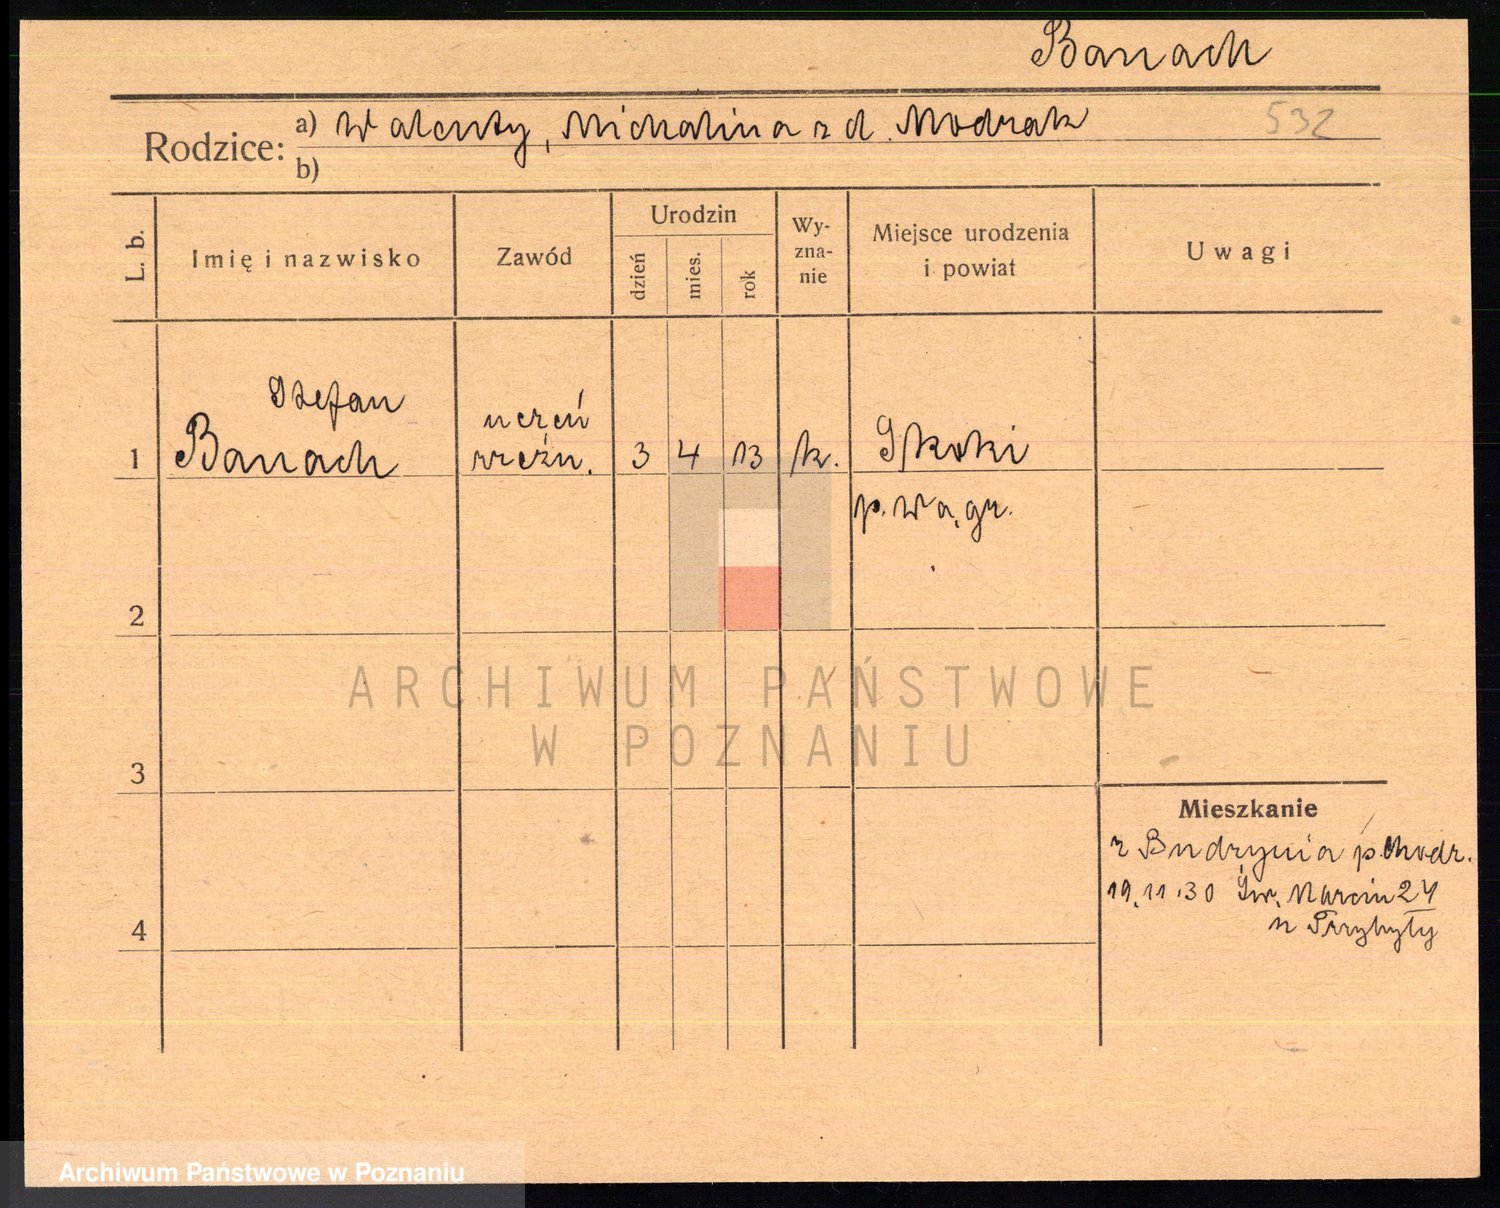 Banach
Rodzice: a) Walenty, Michalina z d. Modrak 532
b)
L. b. Imię i nazwisko Zawód Urodzin dzień mies. rok Wy-zna-nie Miejsce urodzenia i powiat Uwagi
Stefan
1 Banach uczeń rzeźn. 3 4 13 k. Skoki
p. Wągr.
2
ARCHIWUM PAŃSTWOWE
W POZNANIU
3
Mieszkanie
z Budzynia p. Chodz.
19.11.30 Św. Marcin 24
4 u Przybyły
Archiwum Państwowe w Poznaniu